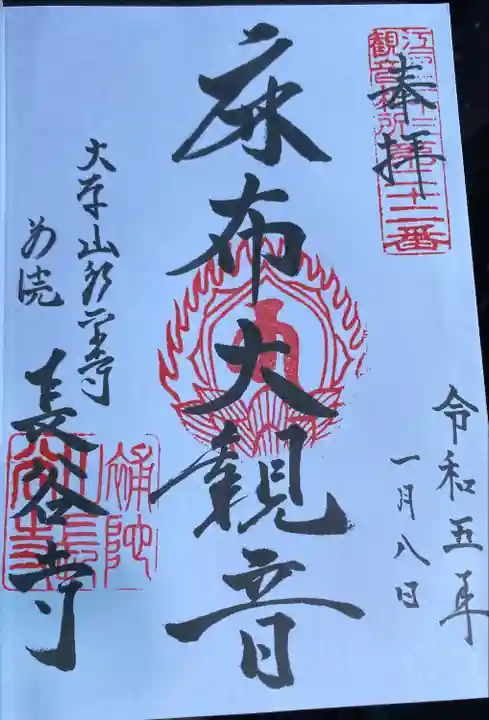 奉拝
江戸三十三
観音札所第二十二番
令和五年
一月八日
麻布大観音
大本山永平寺
別院
長谷寺
補陀